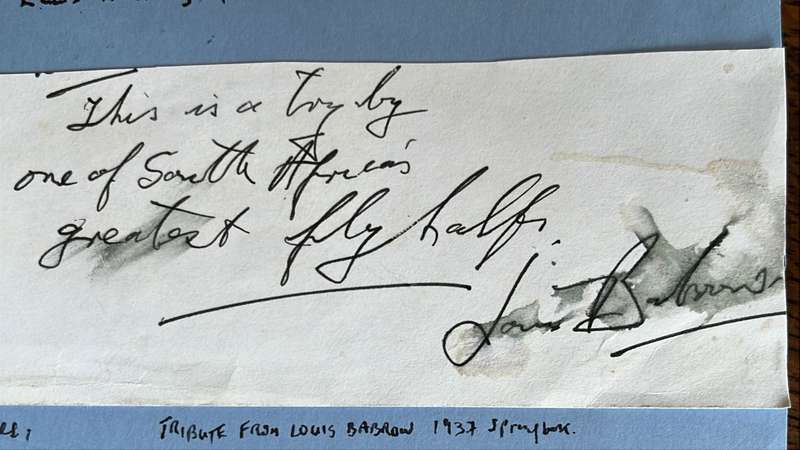 This is a try by
one of South Africa's
greatest fly halfs.
Louis Babrow
TRIBUTE FROM LOUIS BABROW 1937 Springbok.